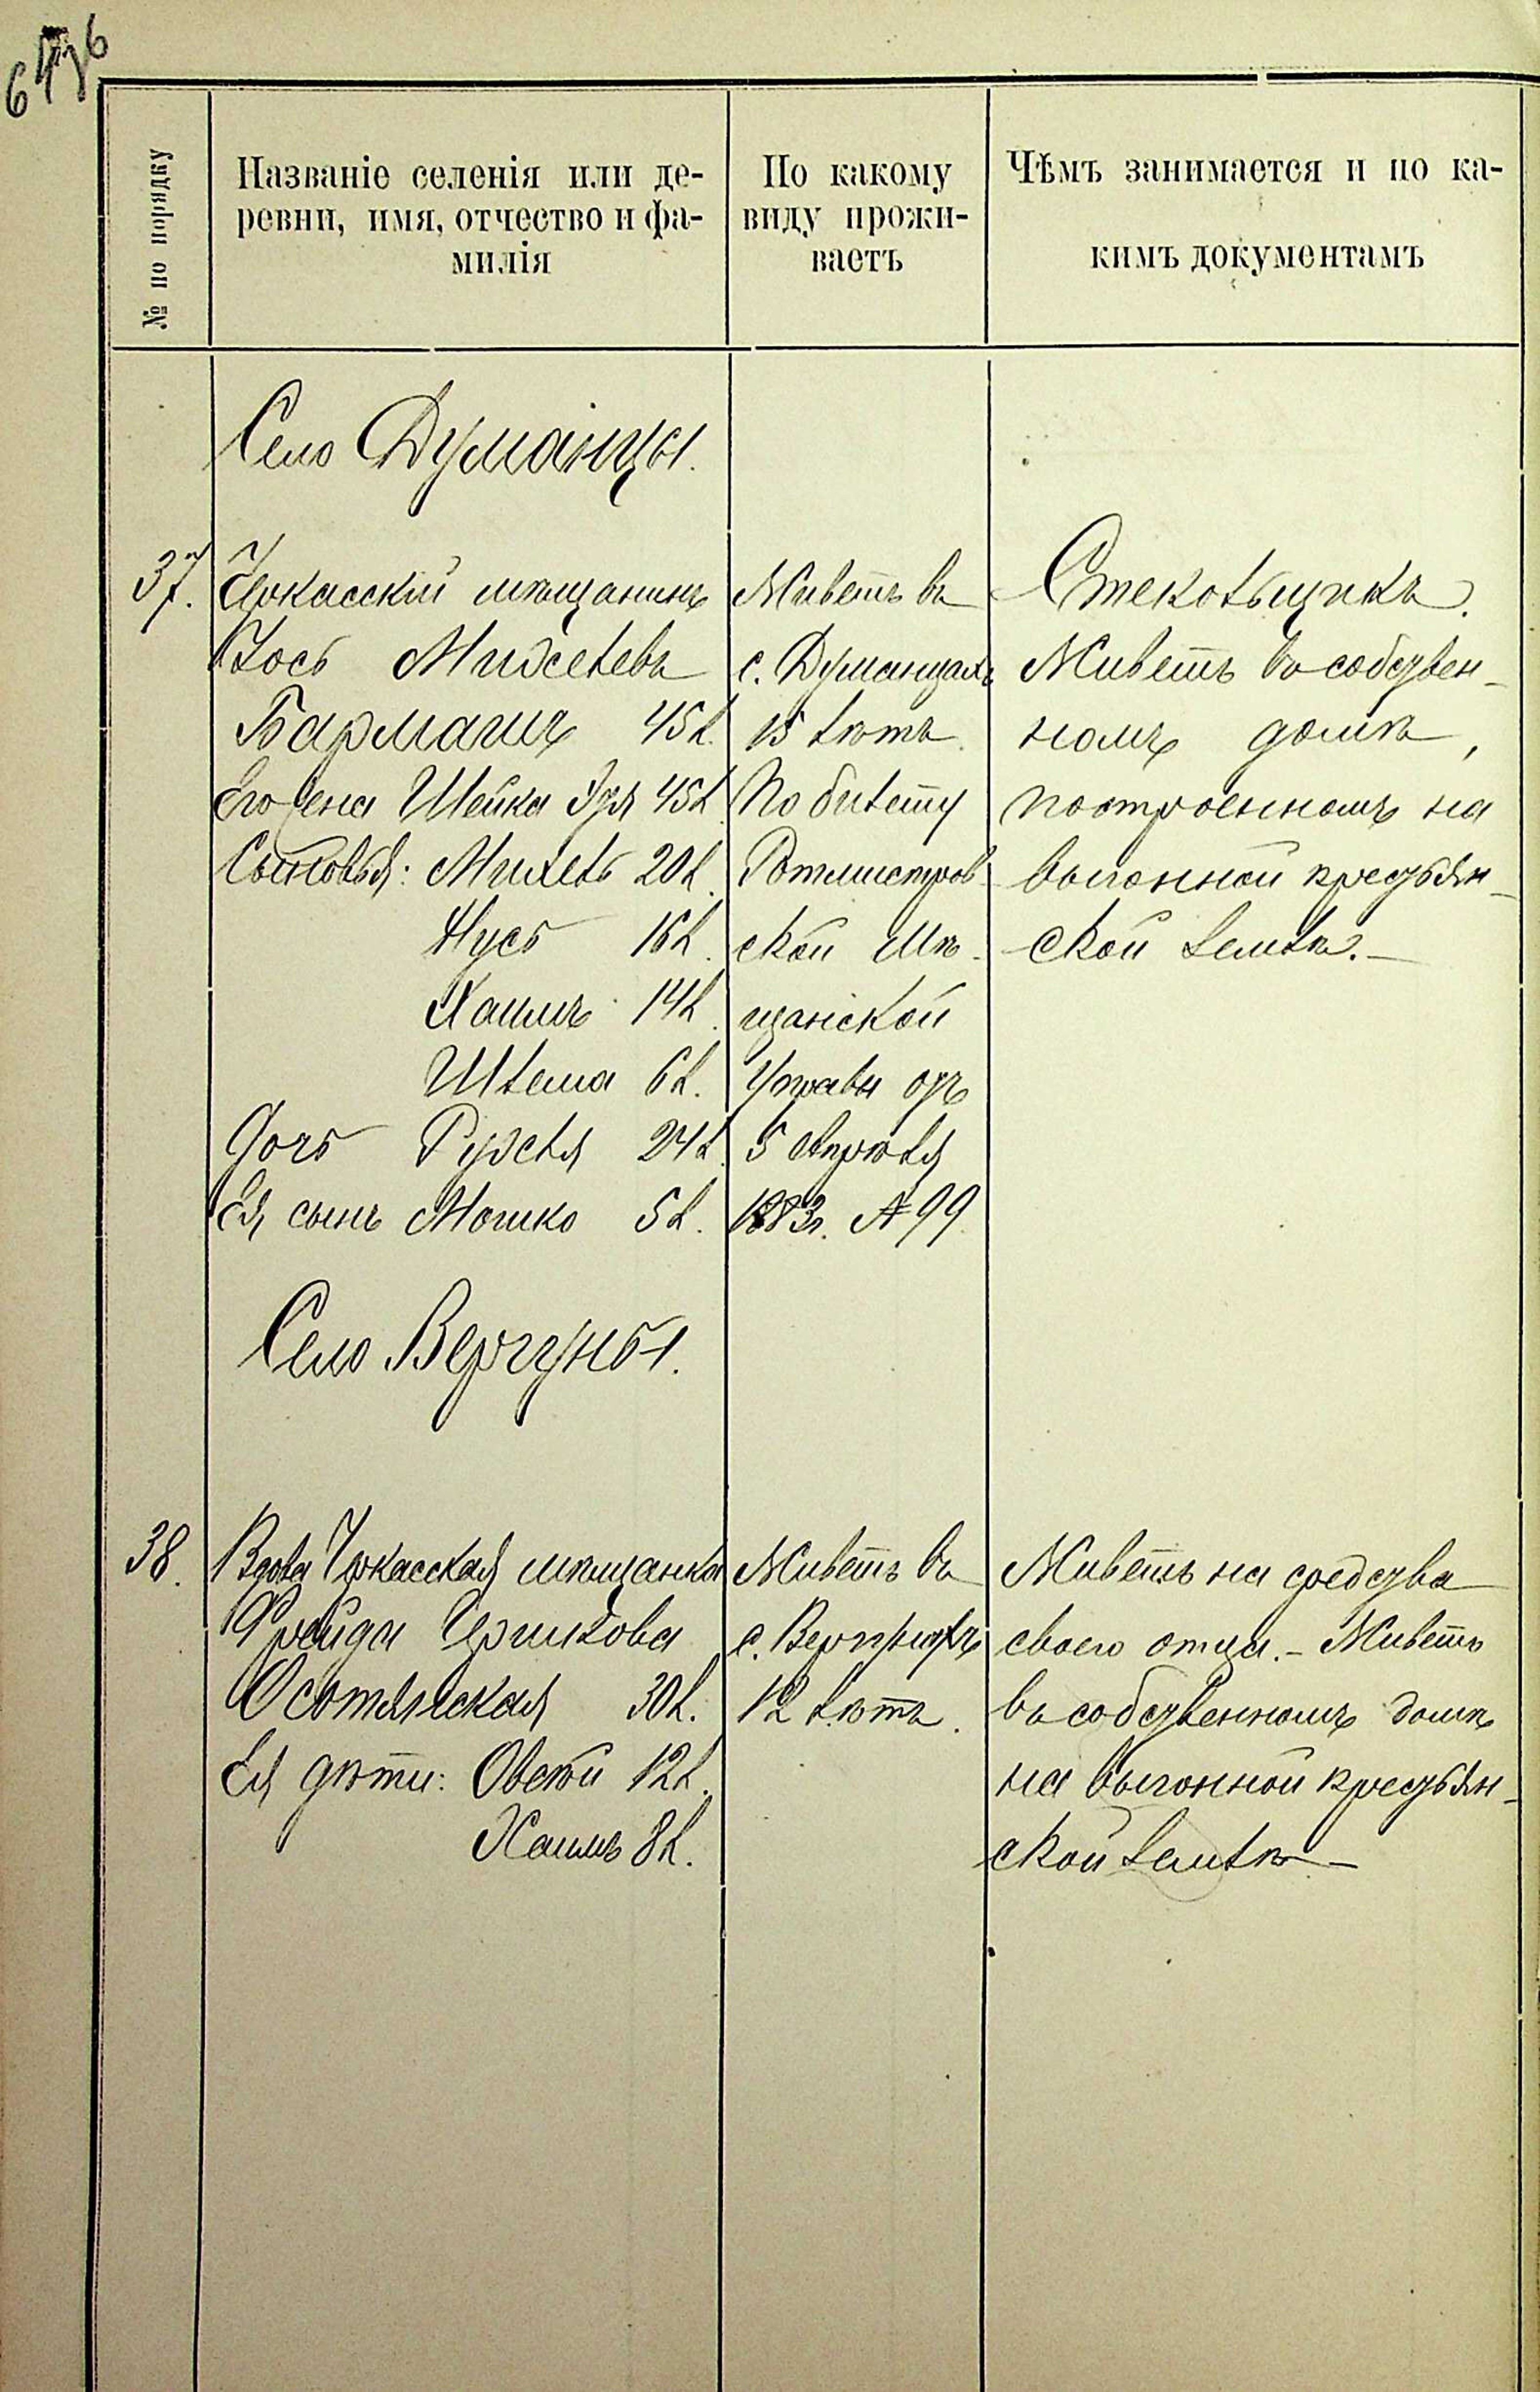 № по порядку
Названіе селенія или де-
ревни, имя, отчество и фа-
милія
По какому
виду прожи-
ваетъ
Чѣмъ занимается и по ка-
кимъ документамъ
Село Думанцы.
37.
Черкасскій мѣщанинъ
Іось
Бармашъ 45 л.
Его жена Шейка Эдя 45 л.
Сыновья: Михель 20 л.
Нусь 16 л.
Хаимъ 14 л.
Шлема 6 л.
Дочь Рухля 24 л.
Ея сынъ Мошко 5 л.
Живетъ въ
с. Думанцахъ
15 лѣтъ.
По билету
Ротмистров-
ской Мѣ-
щанской
Управы отъ
5 Апрѣля
1883 г. № 99
Стекольщикъ.
Живетъ въ собствен-
номъ домѣ,
построенномъ на
выгонной крестьян-
ской землѣ.-
Село Вергуны.
38.
Вдова Черкасская мѣщанка
Фрейда Гершкова
30 л.
Ея дѣти: Овсей 12 л.
Хаимъ 8 л.
Живетъ въ
с. Вергунахъ
12 лѣтъ.
Живетъ на средства
своего отца.- Живетъ
въ собственномъ домѣ
на выгонной крестьян-
ской землѣ-